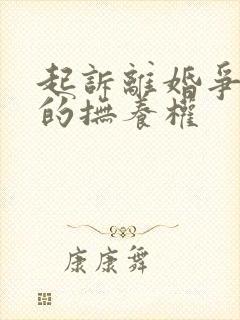 起訴離婚爭
的撫養權
康康舞